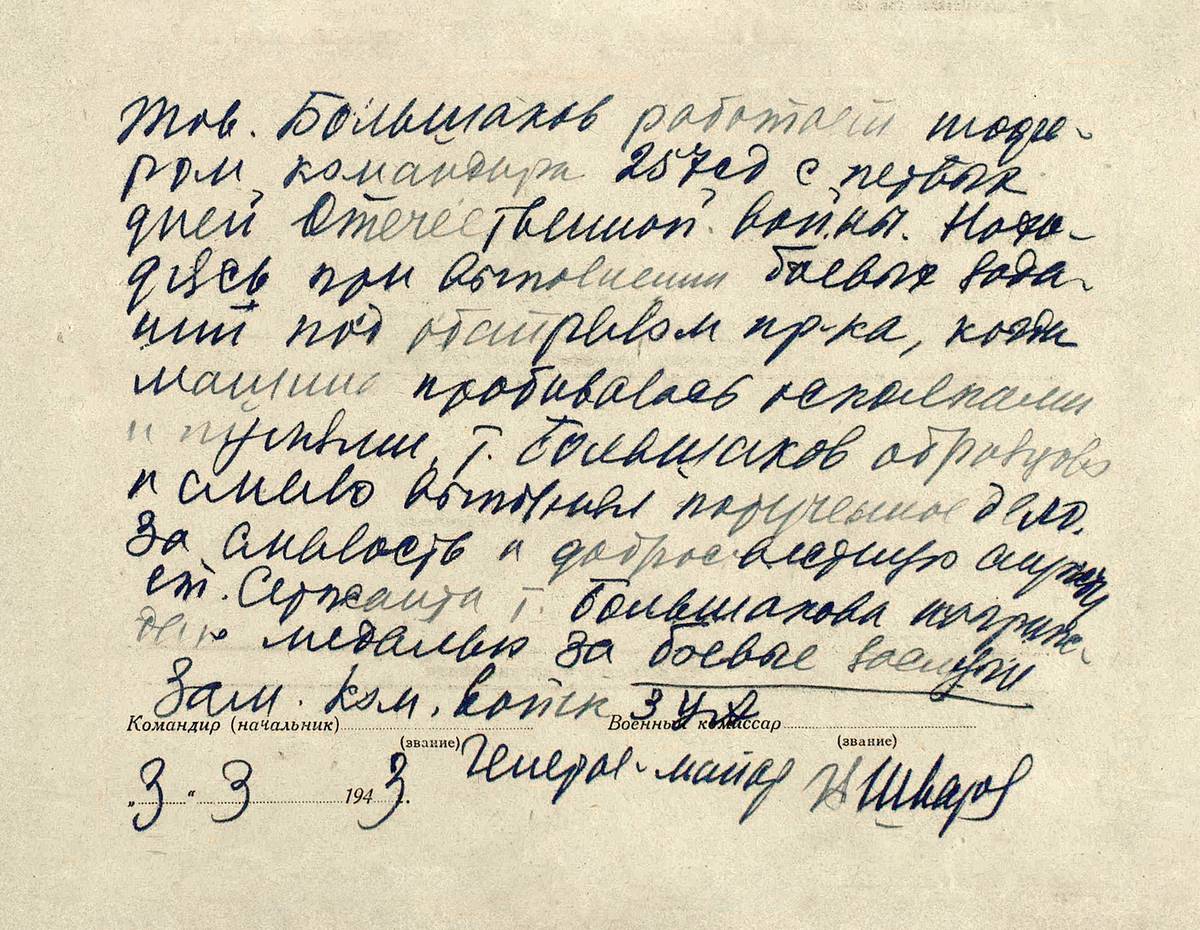 Тов. Большаков работает шофе-
ром командира 257сд с первых
дней Отечественной войны. Нахо-
дясь при выполнении боевых зада-
ний под обстрелом пр-ка, когда
машина пробивалась осколками
и пулями, т. Большаков образцово
и смело выполнял порученное дело.
За смелость и добросовестную службу
ст. Сержанта т. Большакова награж-
даю медалью за боевые заслуги
Зам. Ком. войск 3 УА
Командир (начальник) Военный комиссар
(звание) (звание)
Генерал-майор
„3“ 3 1943.